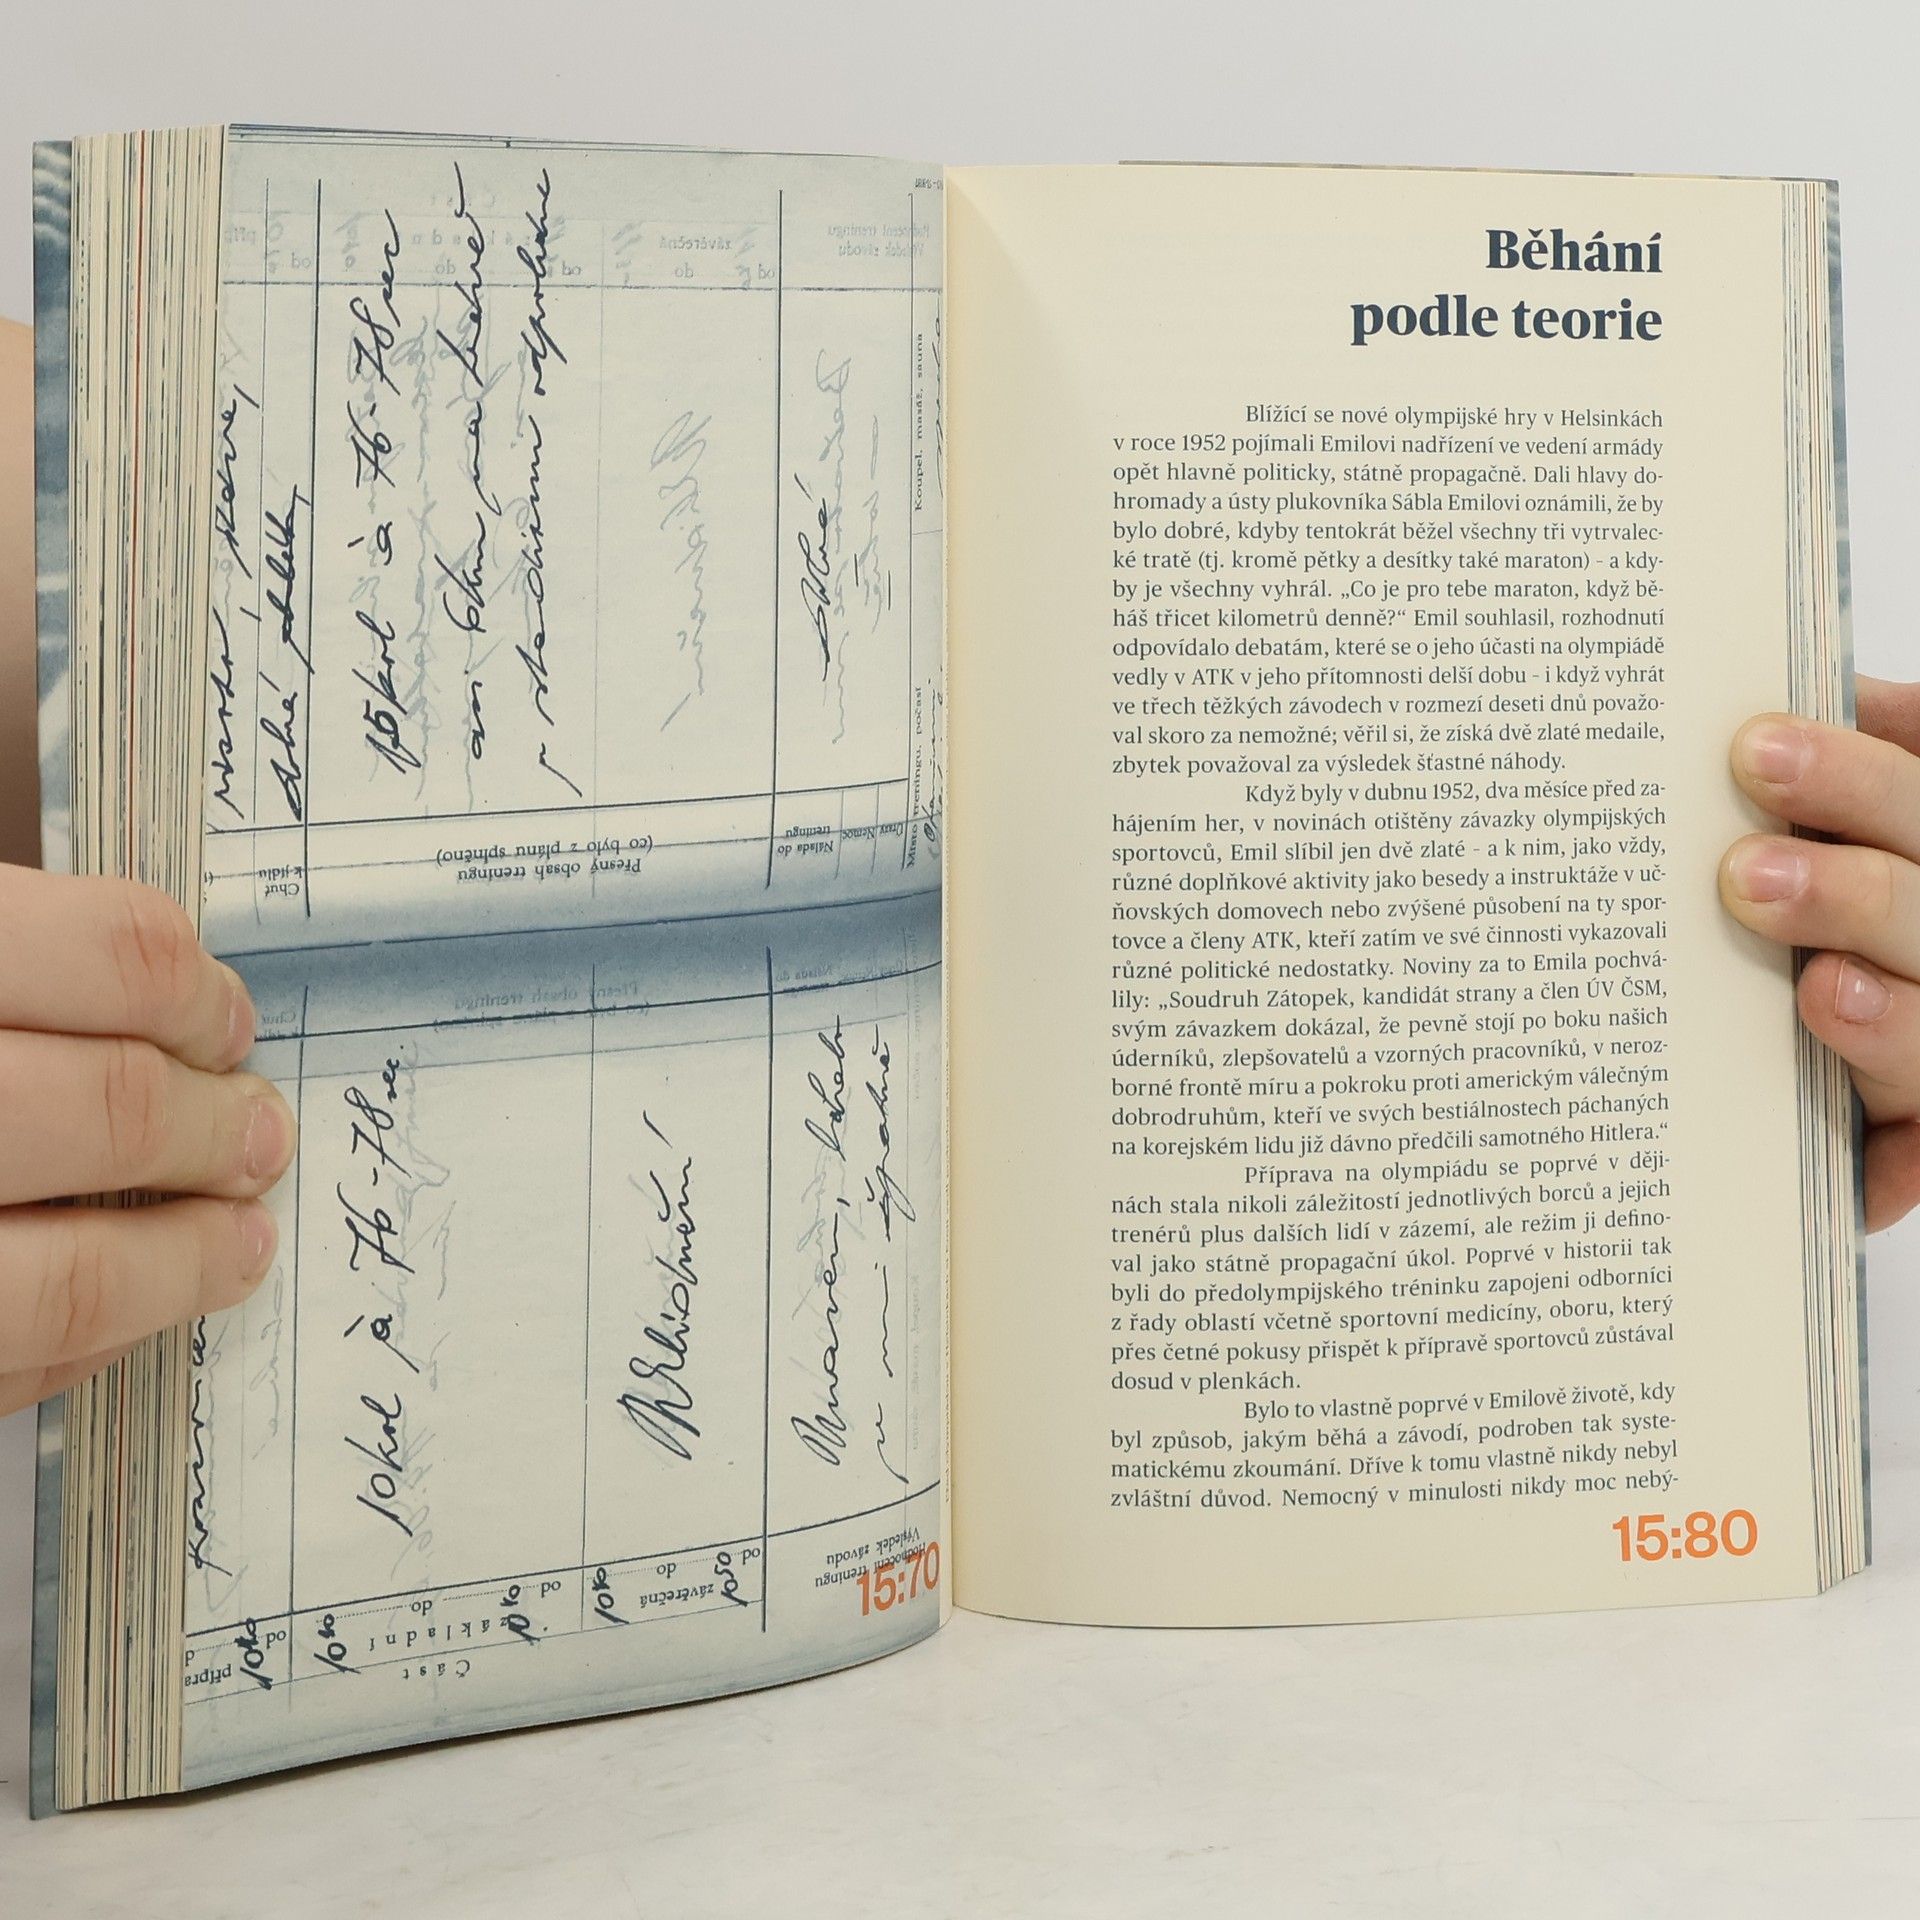 15 kol à 76-78 sec
asi 6 km
dobrá
10 kol à 76-78 sec.
Uklidnění
Přesný obsah treningu
(co bylo z plánu splněno)
Chuť
k jídlu
Nálada do
treningu
Úrazy Nemoc
Místo treningu, počasí
Koupel, masáž, sauna
Část
přípra
základní
závěrečná
od
do
od
do
od
Hodnocení treningu
Výsledek závodu
15:70
Běhání
podle teorie
Blížící se nové olympijské hry v Helsinkách
v roce 1952 pojímali Emilovi nadřízení ve vedení armády
opět hlavně politicky, státně propagačně. Dali hlavy do-
hromady a ústy plukovníka Sábla Emilovi oznámili, že by
bylo dobré, kdyby tentokrát běžel všechny tři vytrvalec-
ké tratě (tj. kromě pětky a desítky také maraton) - a kdy-
by je všechny vyhrál. „Co je pro tebe maraton, když bě-
háš třicet kilometrů denně?“ Emil souhlasil, rozhodnutí
odpovídalo debatám, které se o jeho účasti na olympiádě
vedly v ATK v jeho přítomnosti delší dobu - i když vyhrát
ve třech těžkých závodech v rozmezí deseti dnů považo-
val skoro za nemožné; věřil si, že získá dvě zlaté medaile,
zbytek považoval za výsledek šťastné náhody.
Když byly v dubnu 1952, dva měsíce před za-
hájením her, v novinách otištěny závazky olympijských
sportovců, Emil slíbil jen dvě zlaté - a k nim, jako vždy,
různé doplňkové aktivity jako besedy a instruktáže v uč-
ňovských domovech nebo zvýšené působení na ty spor-
tovce a členy ATK, kteří zatím ve své činnosti vykazovali
různé politické nedostatky. Noviny za to Emila pochvá-
lily: „Soudruh Zátopek, kandidát strany a člen ÚV ČSM,
svým závazkem dokázal, že pevně stojí po boku našich
úderníků, zlepšovatelů a vzorných pracovníků, v neroz-
borné frontě míru a pokroku proti americkým válečným
dobrodruhům, kteří ve svých bestiálnostech páchaných
na korejském lidu již dávno předčili samotného Hitlera.“
Příprava na olympiádu se poprvé v ději-
nách stala nikoli záležitostí jednotlivých borců a jejich
trenérů plus dalších lidí v zázemí, ale režim ji defino-
val jako státně propagační úkol. Poprvé v historii tak
byli do předolympijského tréninku zapojeni odborníci
z řady oblastí včetně sportovní medicíny, oboru, který
přes četné pokusy přispět k přípravě sportovců zůstával
dosud v plenkách.
Bylo to vlastně poprvé v Emilově životě, kdy
byl způsob, jakým běhá a závodí, podroben tak syste-
matickému zkoumání. Dříve k tomu vlastně nikdy nebyl
zvláštní důvod. Nemocný v minulosti nikdy moc nebý-
15:80